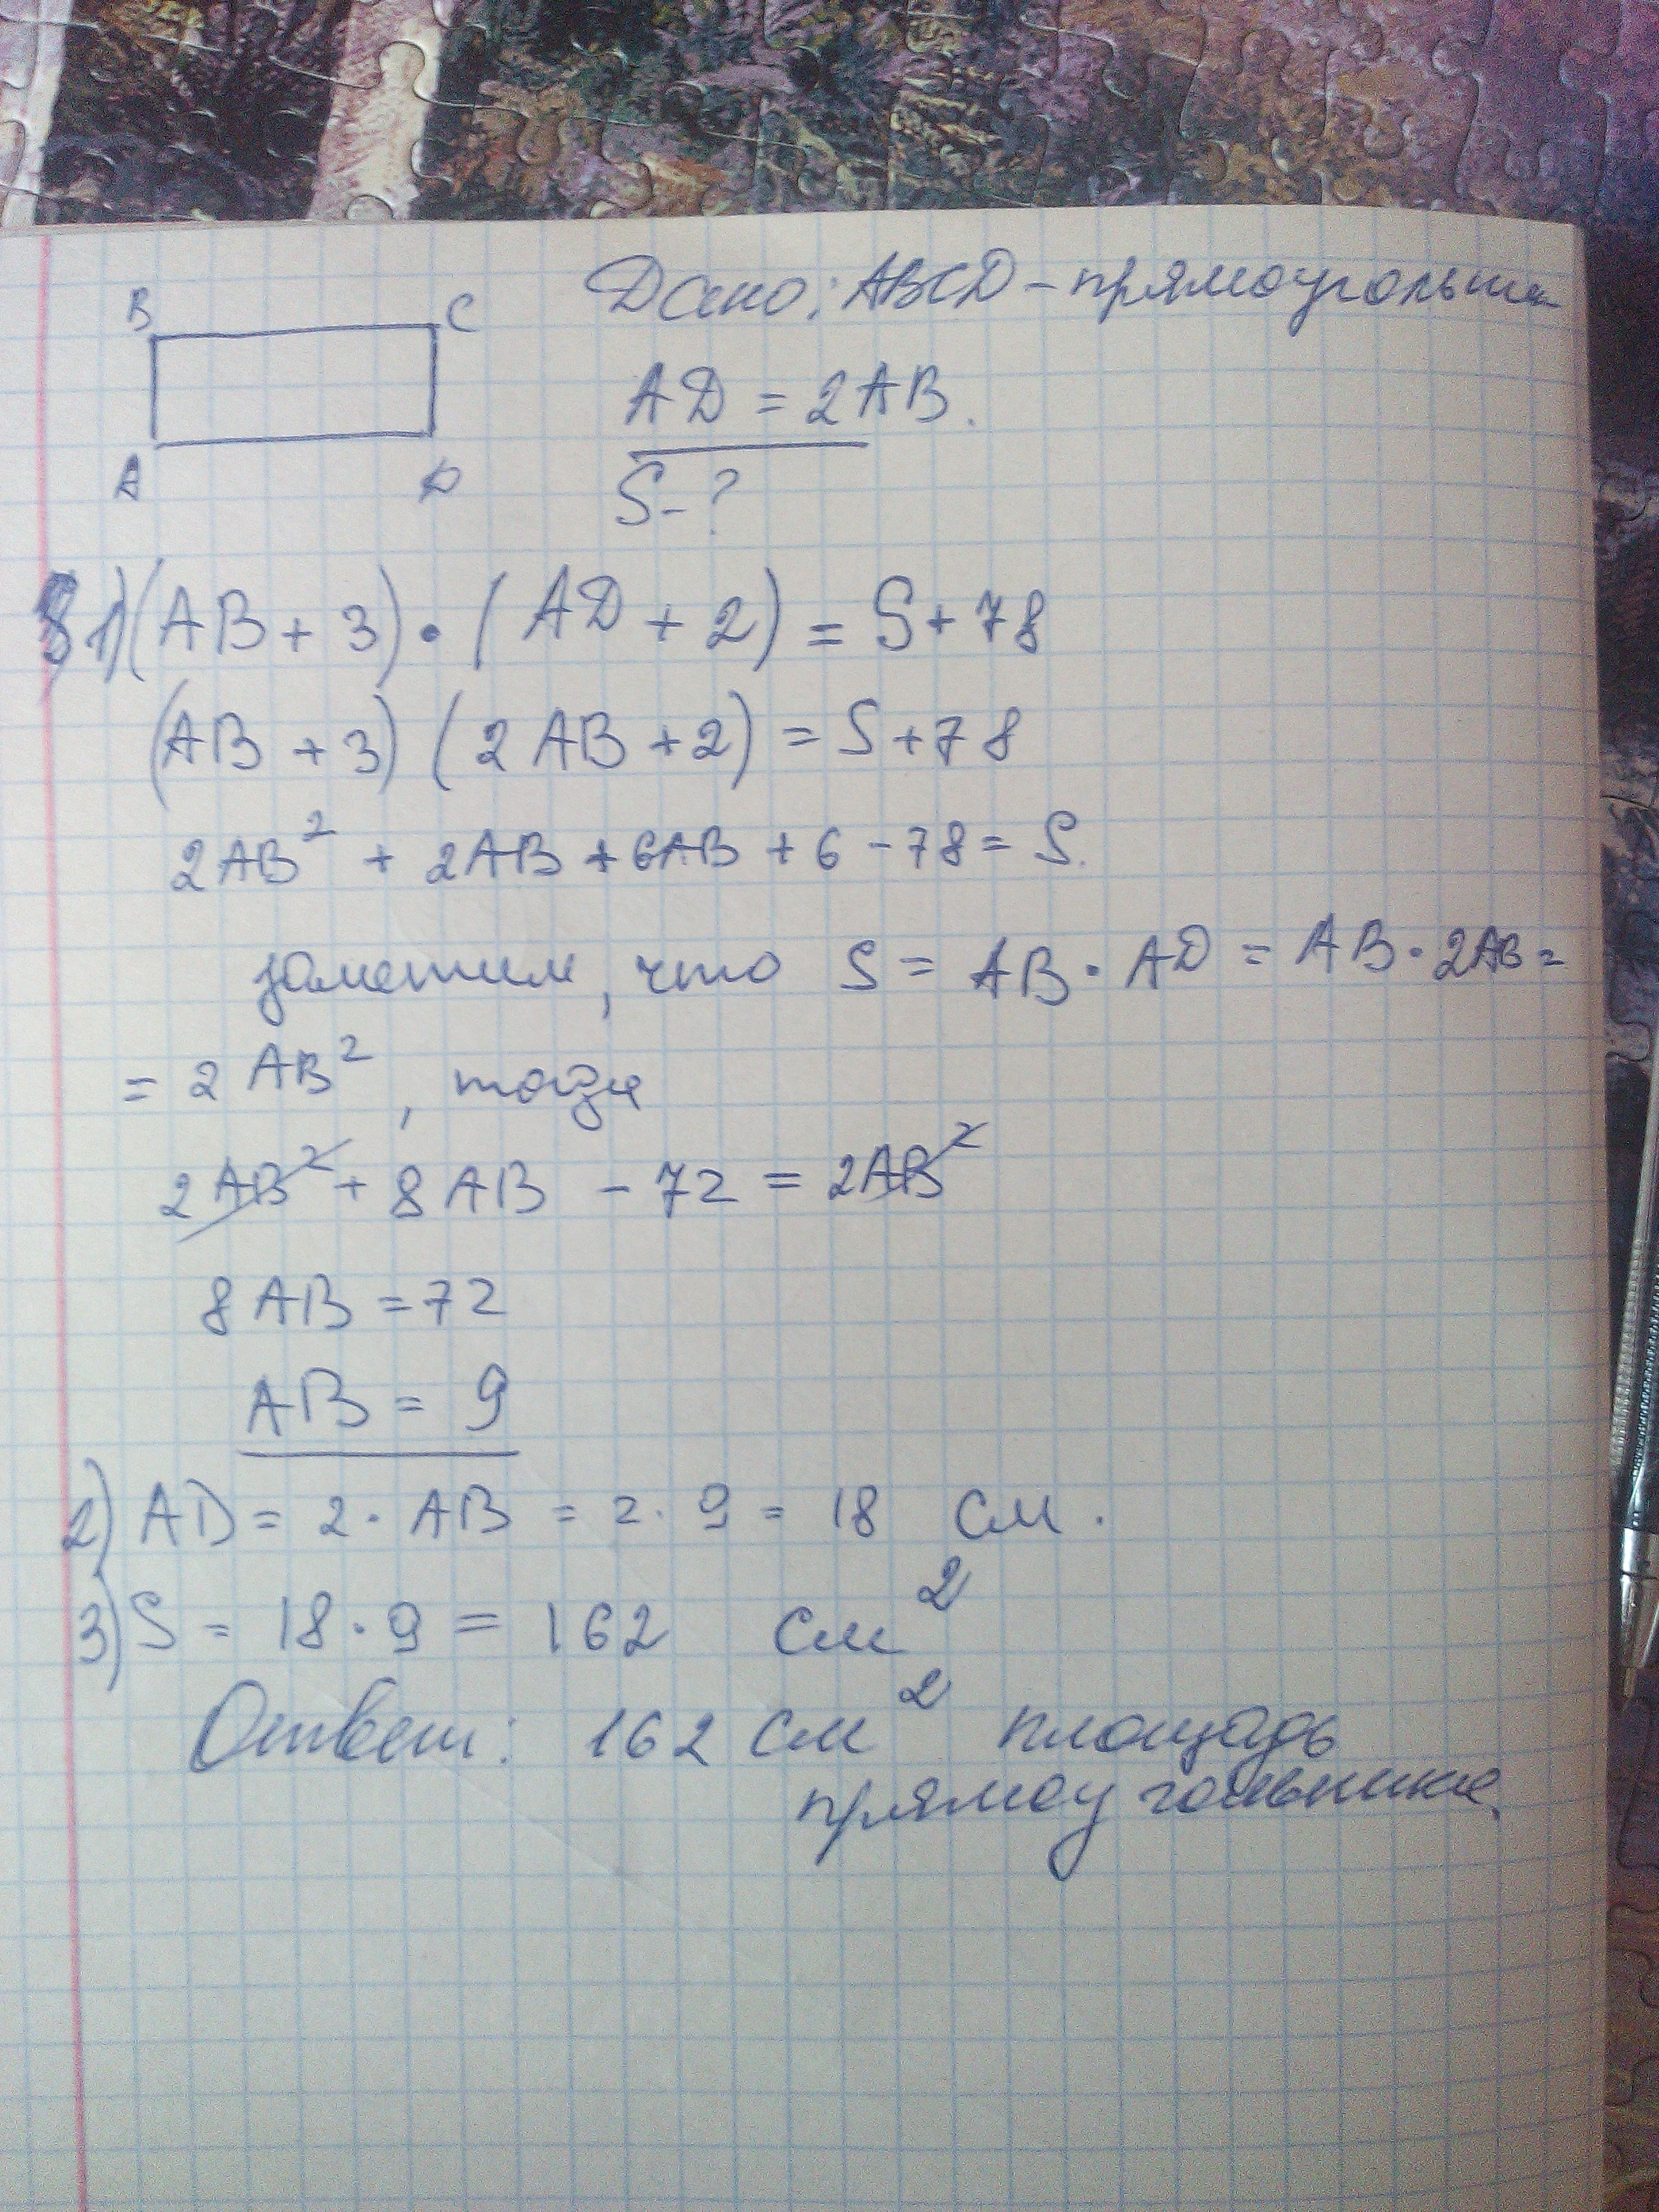 B C Дано: ABCD - прямоугольник
AD = 2AB.
A D S - ?
1) (AB + 3) · (AD + 2) = S + 78
(AB + 3) (2AB + 2) = S + 78
2AB² + 2AB + 6AB + 6 - 78 = S.
заметим, что S = AB · AD = AB · 2AB =
= 2AB², тогда
2AB² + 8AB - 72 = 2AB²
8AB = 72
AB = 9
2) AD = 2 · AB = 2 · 9 = 18 см.
3) S = 18 · 9 = 162 см²
Ответ: 162 см² площадь
прямоугольника.